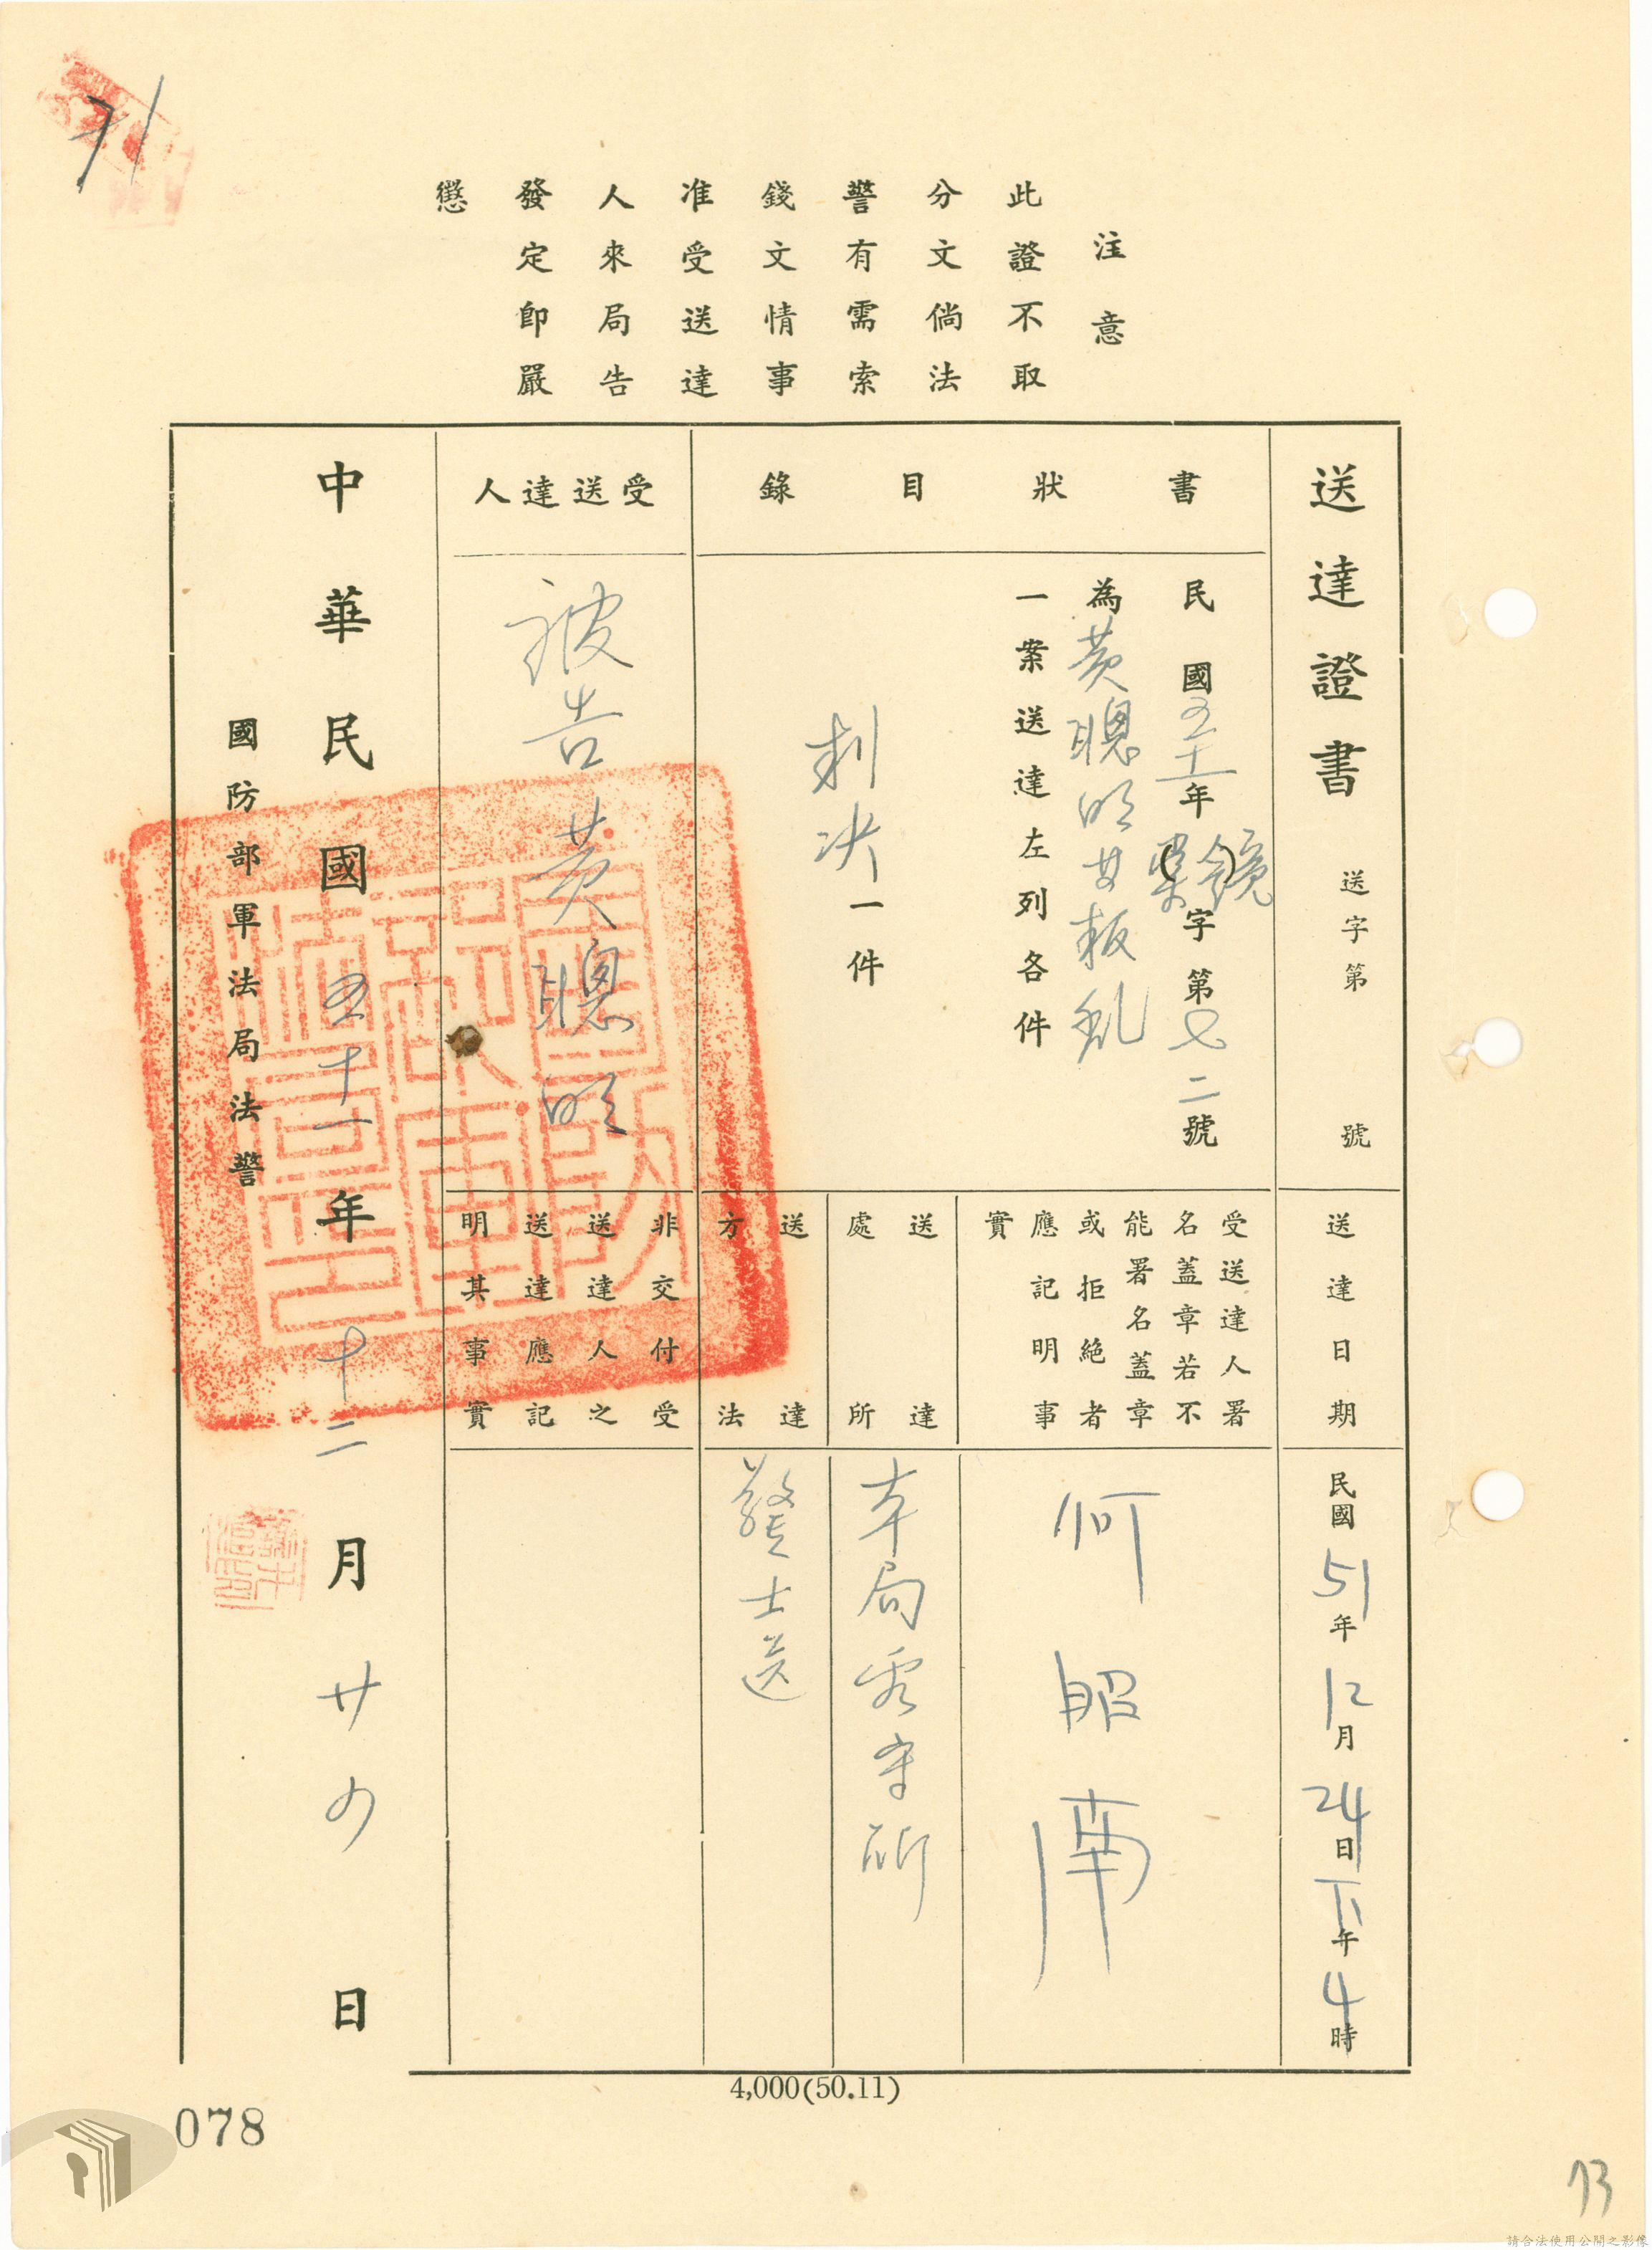 71
注意
此證不取
分文倘法
警有需索
錢文情事
准受送達
人來局告
發定即嚴
懲
送達證書 送字第 號
書狀目錄
民國五十一年 字第七二號
為黃聰明等叛亂
一案送達左列各件
判決一件
受送達人
被告黃聰明
送達日期
民國51年12月24日下午4時
受送達人署
名蓋章若不
能署名蓋章
或拒絕者
應記明事
實
何昭庸
送達
處所
本局看守所
送達
方法
警士送
非交付受
送達人之
送達應記
明其事實
中華民國五十一年十二月廿四日
國防部軍法局法警
4,000(50.11)
078
73
請合法使用公開之影像